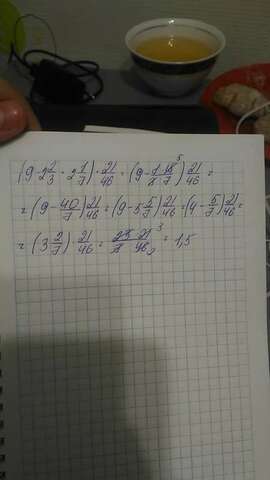 (9 - 2 2/3 · 2 1/7) · 21/46 = (9 - 8/3 · 15/7) 21/46 =
= (9 - 40/7) 21/46 = (9 - 5 5/7) 21/46 = (4 - 5/7) 21/46 =
= (3 2/7) · 21/46 = 23 · 21/7 · 46 = 1,5